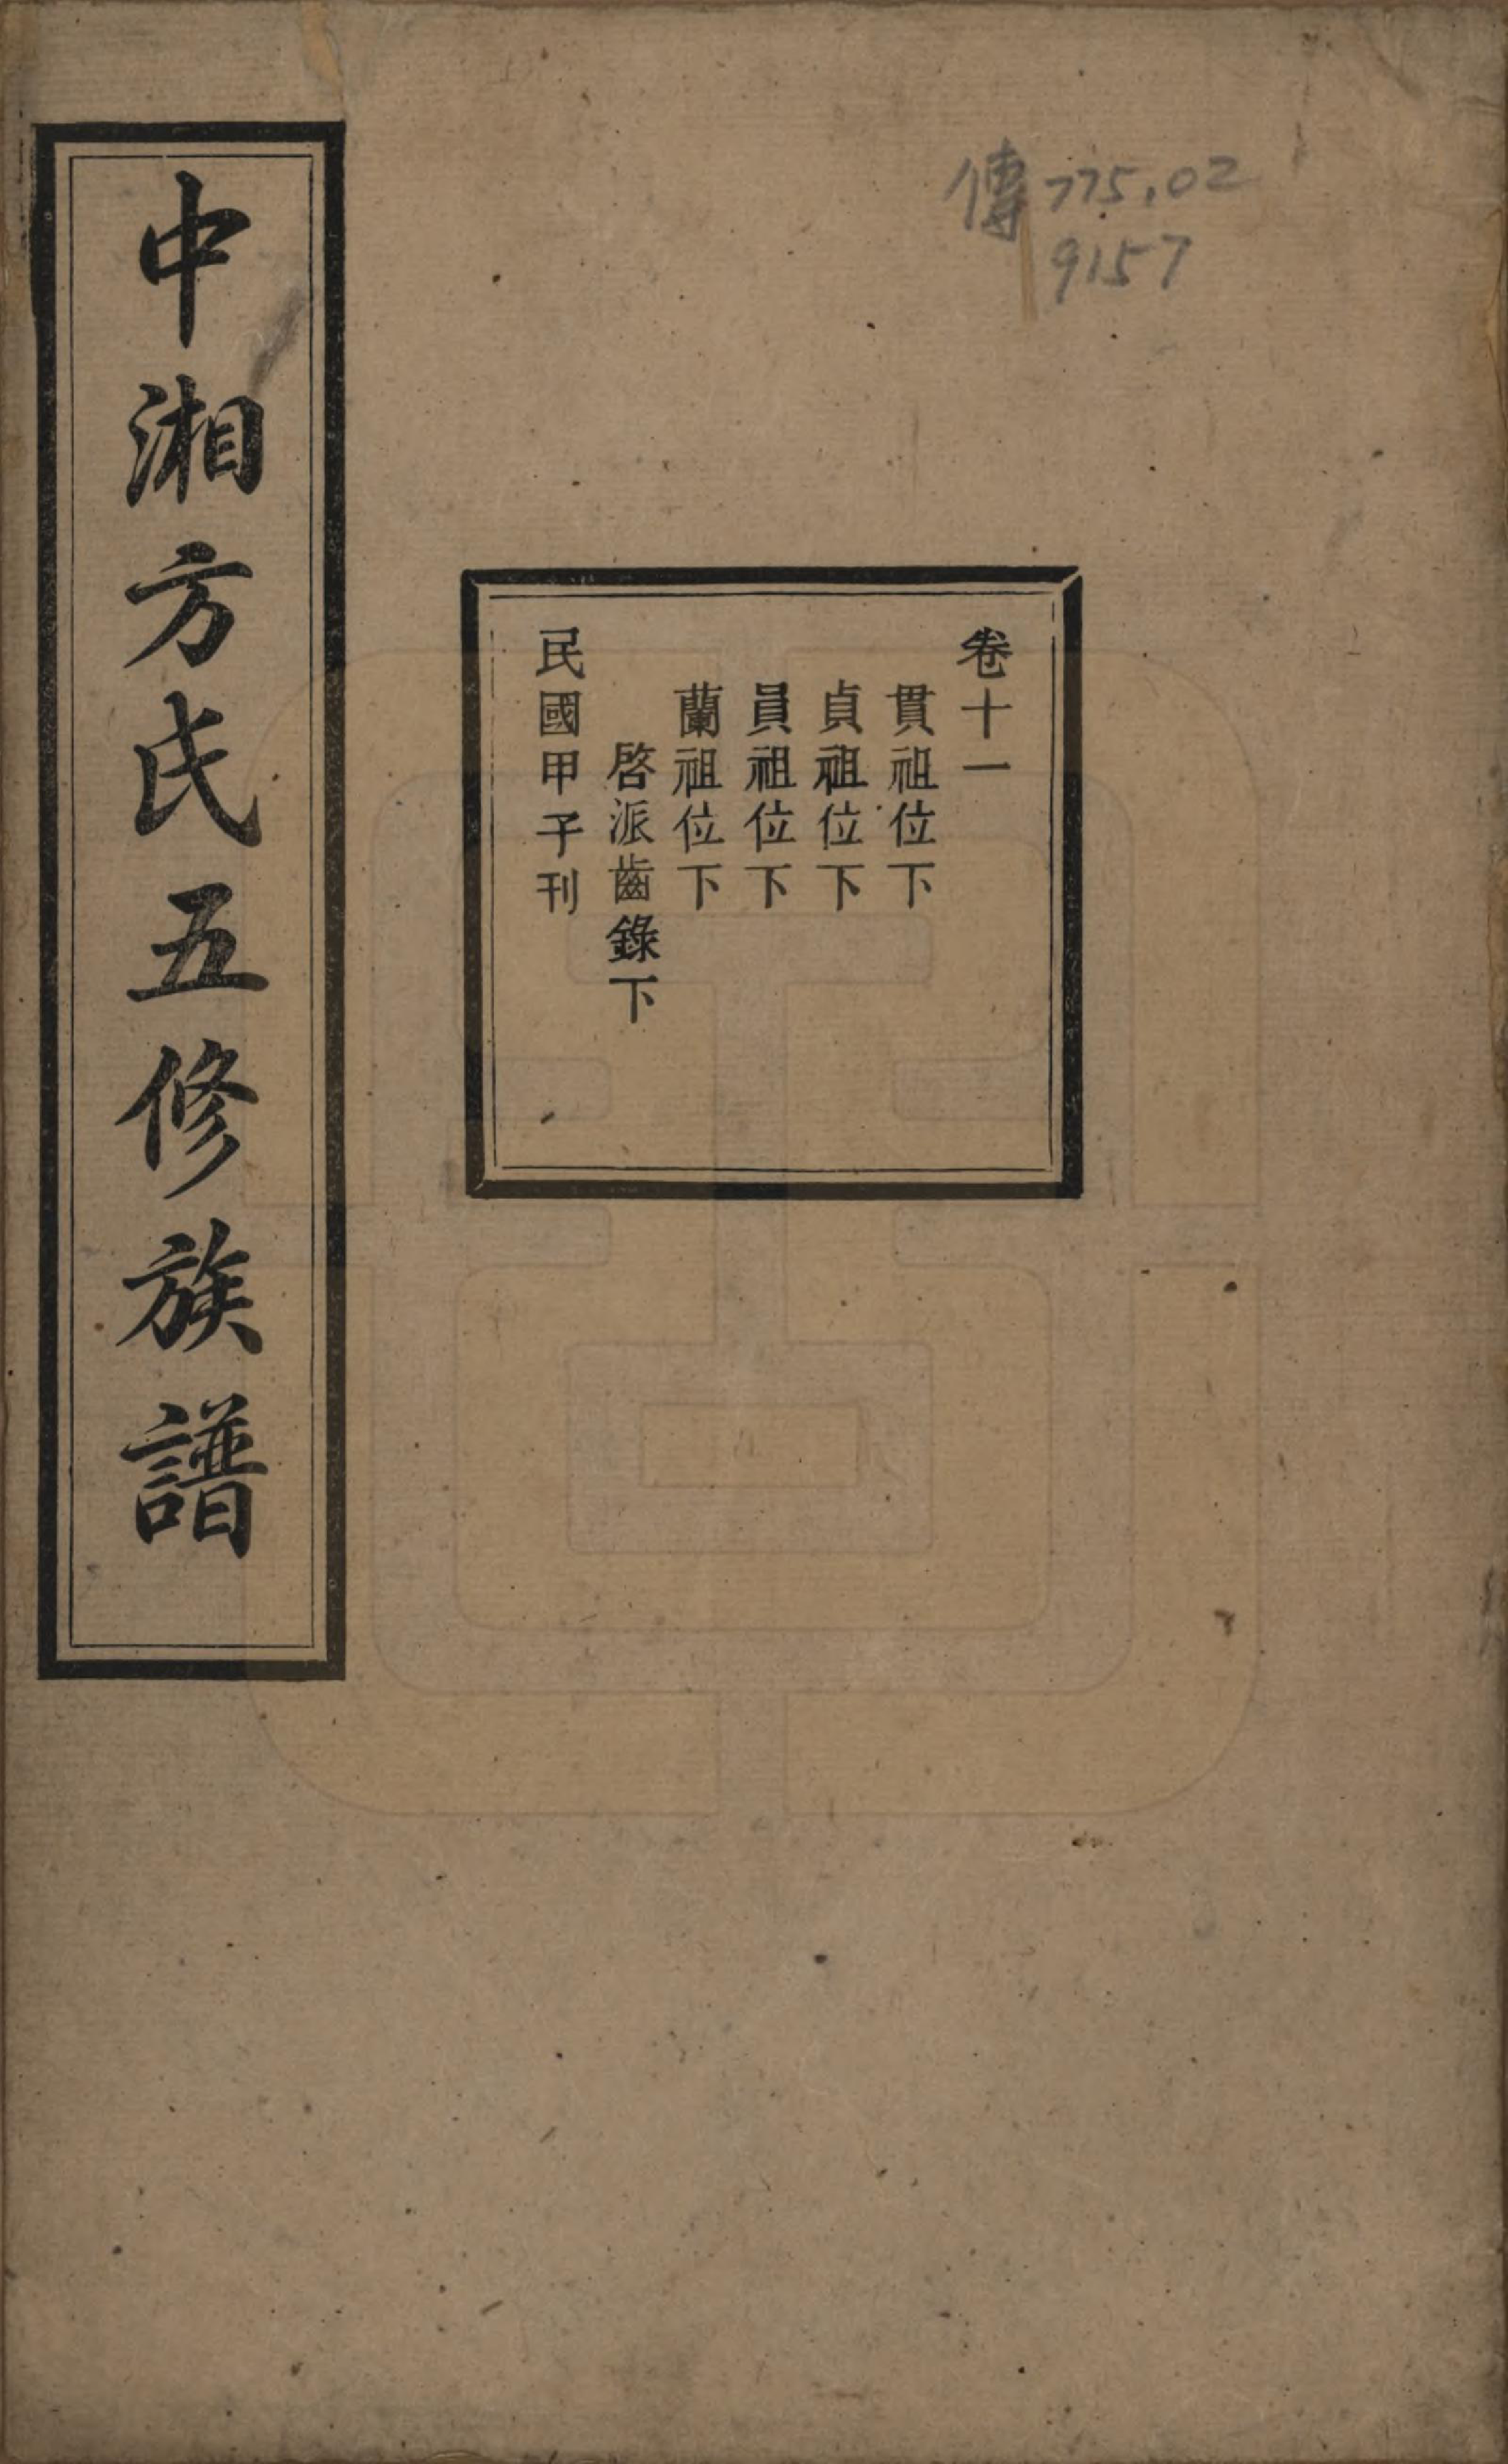 傳 775.02
9157
卷十一
貫祖位下
貞祖位下
員祖位下
蘭祖位下
啓派齒錄下
民國甲子刊
中湘方氏五修族譜